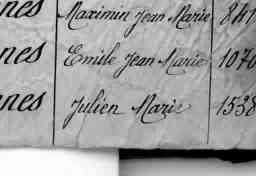 nnes Maximin Jean Marie 847
nnes Emile Jean Marie 1070
nnes Julien Marie 1538